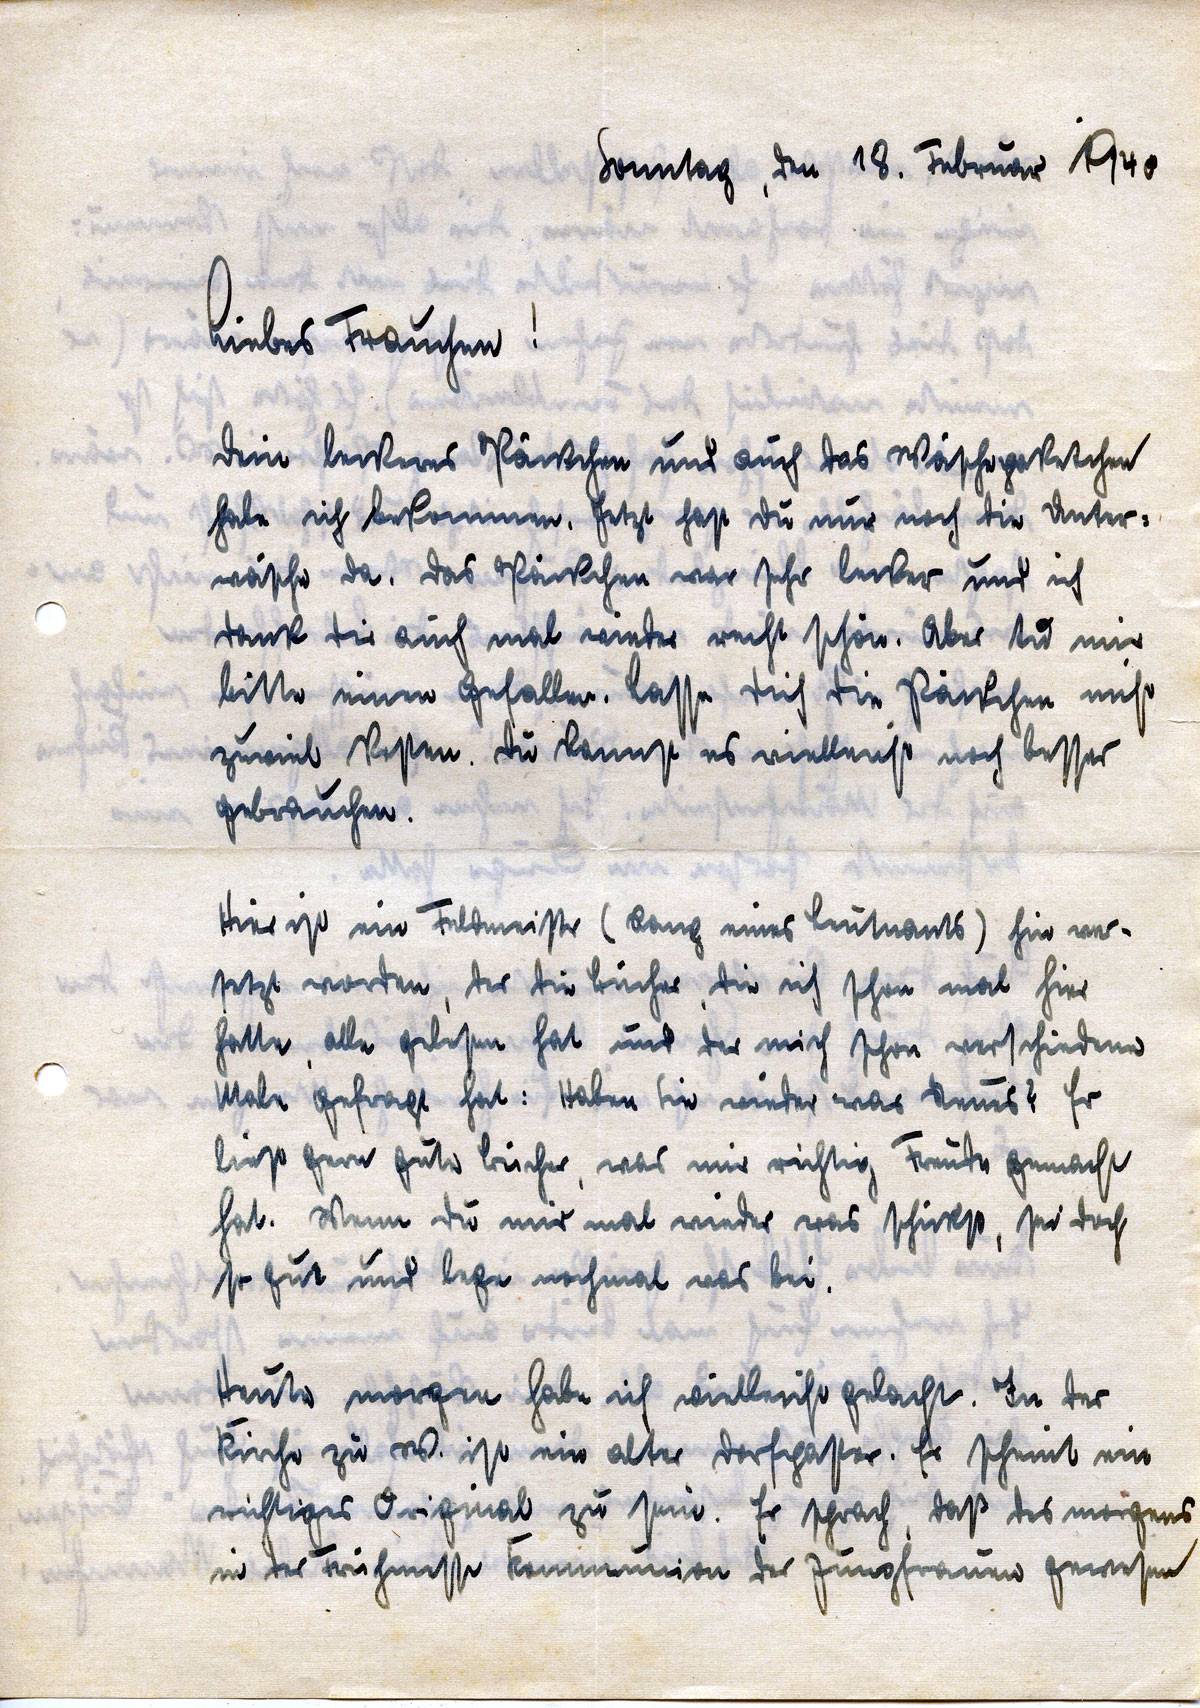 Sonntag, den 18. Februar 1940
Liebes Frauchen!
Dein leckeres Päckchen und auch das Wäschepaketchen
habe ich bekommen. Jetzt hast Du nur noch die Unter=
wäsche da. Das Päckchen war sehr lecker und ich
dank Dir auch mal wieder recht schön. Aber tu mir
bitte einen Gefallen. Lasse Dich die Päckchen nicht
zuviel kosten. Du kannst es vielleicht noch besser
gebrauchen.
Hier ist ein Feldmeister (Rang eines Leutnants) hin ver-
setzt worden, der die Bücher, die ich schon mal hier
hatte, alle gelesen hat und der mich schon verschiedene
Male gefragt hat: Haben Sie wieder was Neues? Er
liest gern gute Bücher, was mir richtig Freude gemacht
hat. Wenn du mir mal wieder was schickst, sei doch
so gut und lege nochmal was bei.
Heute morgen habe ich vielleicht gelacht. In der
Kirche zu W. ist ein alter Dorfpastor. Er scheint ein
richtiges Original zu sein. Er sprach, daß des morgens
in der Frühmesse Kommunion der Jungfrauen gewesen